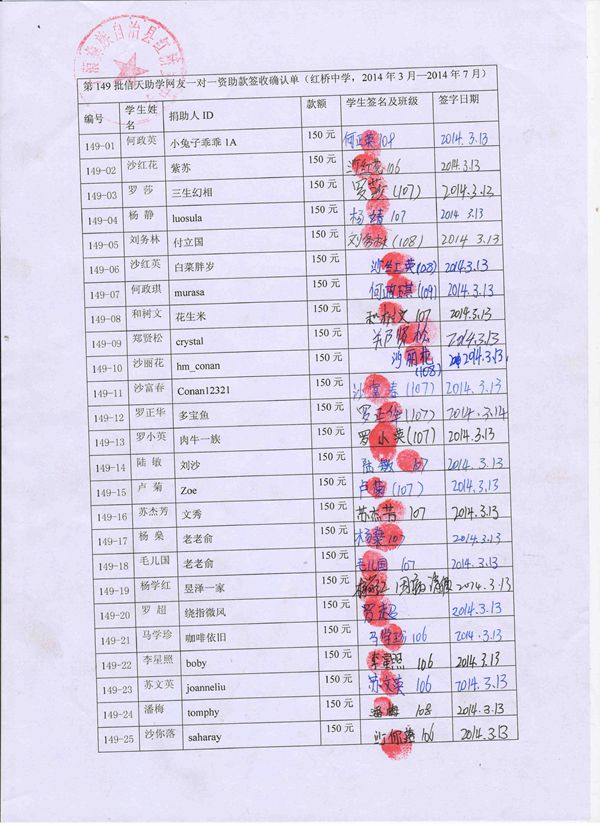 族自治县红桥
第149批信天助学网友一对一资助款签收确认单（红桥中学，2014年3月—2014年7月）
编号 学生姓名 捐助人ID 款额 学生签名及班级 签字日期
149-01 何政英 小兔子乖乖1A 150元 何正英 108 2014.3.13
149-02 沙红花 紫苏 150元 沙红花 106 2014.3.13
149-03 罗 莎 三生幻相 150元 罗莎(107) 2014.3.13
149-04 杨 静 luosula 150元 杨婧 107 2014.3.13
149-05 刘务林 付立国 150元 刘务林(108) 2014 3.13
149-06 沙红英 白菜胖岁 150元 沙红英(103) 2014.3.13
149-07 何政琪 murasa 150元 何政琪(109) 2014.3.13
149-08 和树文 花生米 150元 和树文 107 2014.3.13
149-09 郑贤松 crystal 150元 郑贤松 2014.3.13
149-10 沙丽花 hm_conan 150元 沙丽花(108) 2014.3.13
149-11 沙富春 Conan12321 150元 沙富春(107) 2014.3.13
149-12 罗正华 多宝鱼 150元 罗正华(107) 2014.3.14
149-13 罗小英 肉牛一族 150元 罗小英(107) 2014.3.13
149-14 陆 敏 刘沙 150元 陆敏 107 2014.3.13
149-15 卢 菊 Zoe 150元 卢菊(107) 2014.3.13
149-16 苏杰芳 文秀 150元 苏杰芳 107 2014.3.13
149-17 杨 燊 老老俞 150元 杨燊 107 2014.3.13
149-18 毛儿国 老老俞 150元 毛儿国 107 2014.3.13
149-19 杨学红 昱泽一家 150元 2014.3.13
149-20 罗 超 绕指微风 150元 罗超 2014.3.13
149-21 马学珍 咖啡依旧 150元 马学珍 106 2014.3.13
149-22 李星照 boby 150元 李星照 106 2014.3.13
149-23 苏文英 joanneliu 150元 苏文英 106 2014.3.13
149-24 潘梅 tomphy 150元 潘梅 108 2014.3.13
149-25 沙你落 saharay 150元 沙你落 106 2014.3.13